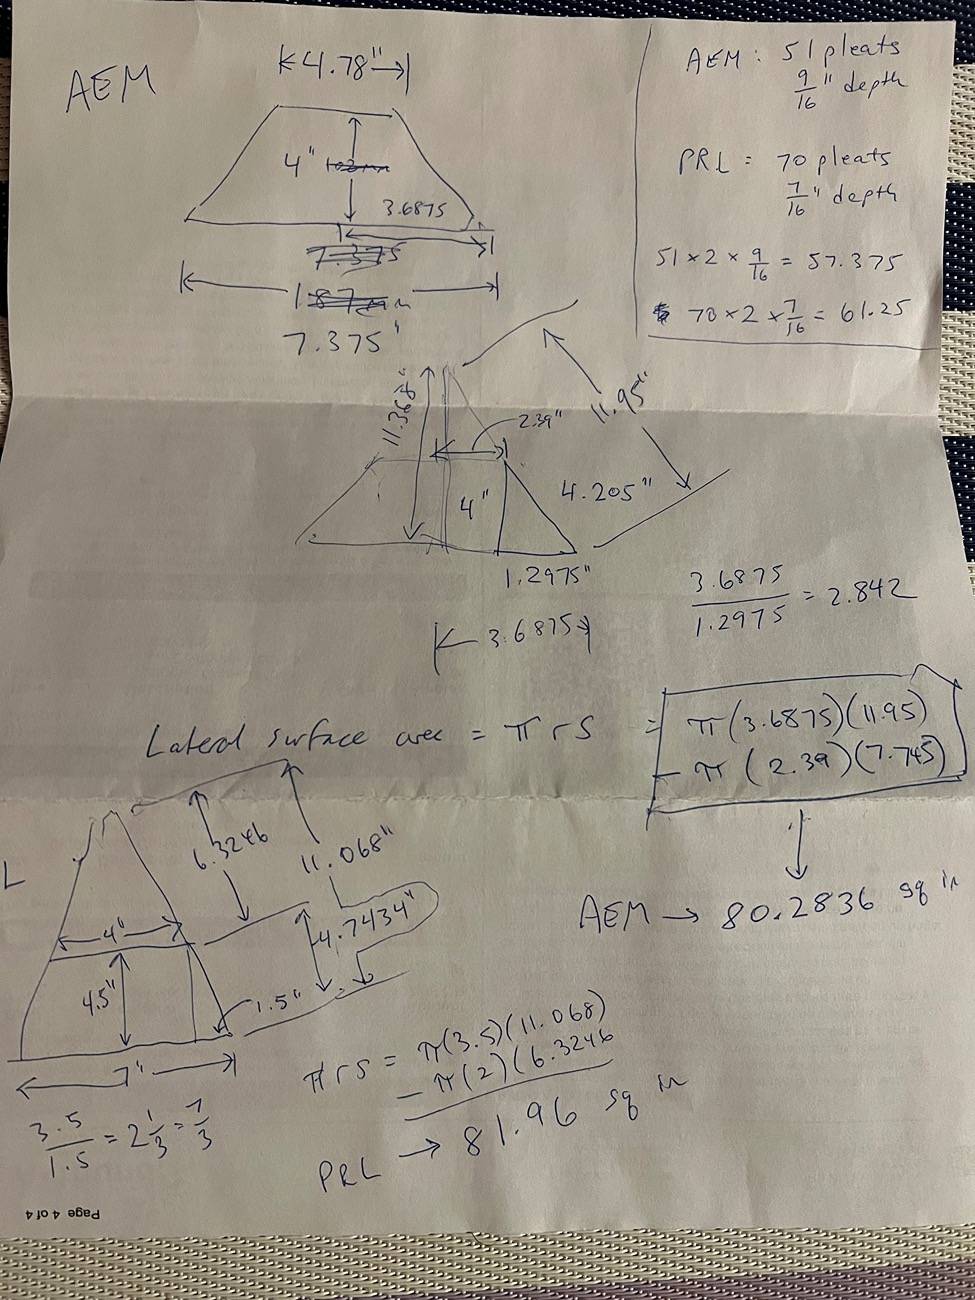 AEM
4.78"
4"
3.6875
7.375
187mm
7.375"
AEM: 51 pleats
9/16" depth
PRL = 70 pleats
7/16" depth
51 × 2 × 9/16 = 57.375
70 × 2 × 7/16 = 61.25
11.368"
2.39"
11.95"
4"
4.205"
1.2975"
3.6875
3.6875/1.2975 = 2.842
Lateral surface area = π r s = π(3.6875)(11.95)
- π (2.39)(7.745)
AEM → 80.2836 sq in
L
6.3246
11.068"
4.7434"
4"
4.5"
1.5"
7"
3.5/1.5 = 2 1/3 = 7/3
π r s = π(3.5)(11.068)
- π(2)(6.3246
PRL → 81.96 sq in
Page 4 of 4